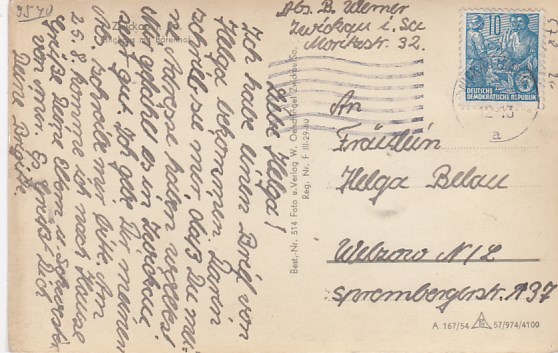 9540
Zwickau
Liebe Helga!
Ich habe einen Brief von
Helga bekommen. Darin
schreibt sie mir, daß Du mei-
ne Adresse haben wolltest.
Wie gefällt es in Zwickau
gut. Ich Dir meinen
schreibe mir bitte. Am
25.8. komme ich nach Hause
Grüße Deine Eltern u. Schwester
von mir. Es grüßt Dich
Deine Brigitte.
Best.-Nr. 514 Foto u. Verlag W. Zwickau/Sa.
Reg. Nr. F III-29
Abs. B. Werner
Zwickau i. Sa
Moritzstr. 32.
10
DEUTSCHE
DEMOKRATISCHE REPUBLIK
a
An
Fräulein
Helga Belau
Welzow N/L
Sprembergerstr. 137
A 167/54 57/974/4100